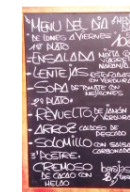 MENU DEL DÍA
DE LUNES A VIERNES
1º PLATO
- ENSALADA MIXTA
- LENTEJAS ESTOFADAS
CON VERDURAS
- SOPA DE TOMATE CON
MEJILLONES
2º PLATO
- REVUELTO DE JAMÓN
Y VERDURA
- ARROZ CALDOSO DE
PESCADO
- SOLOMILLO CON SALSA
CARBONARA
POSTRE
CREMOSO
DE CACAO CON
HELADO